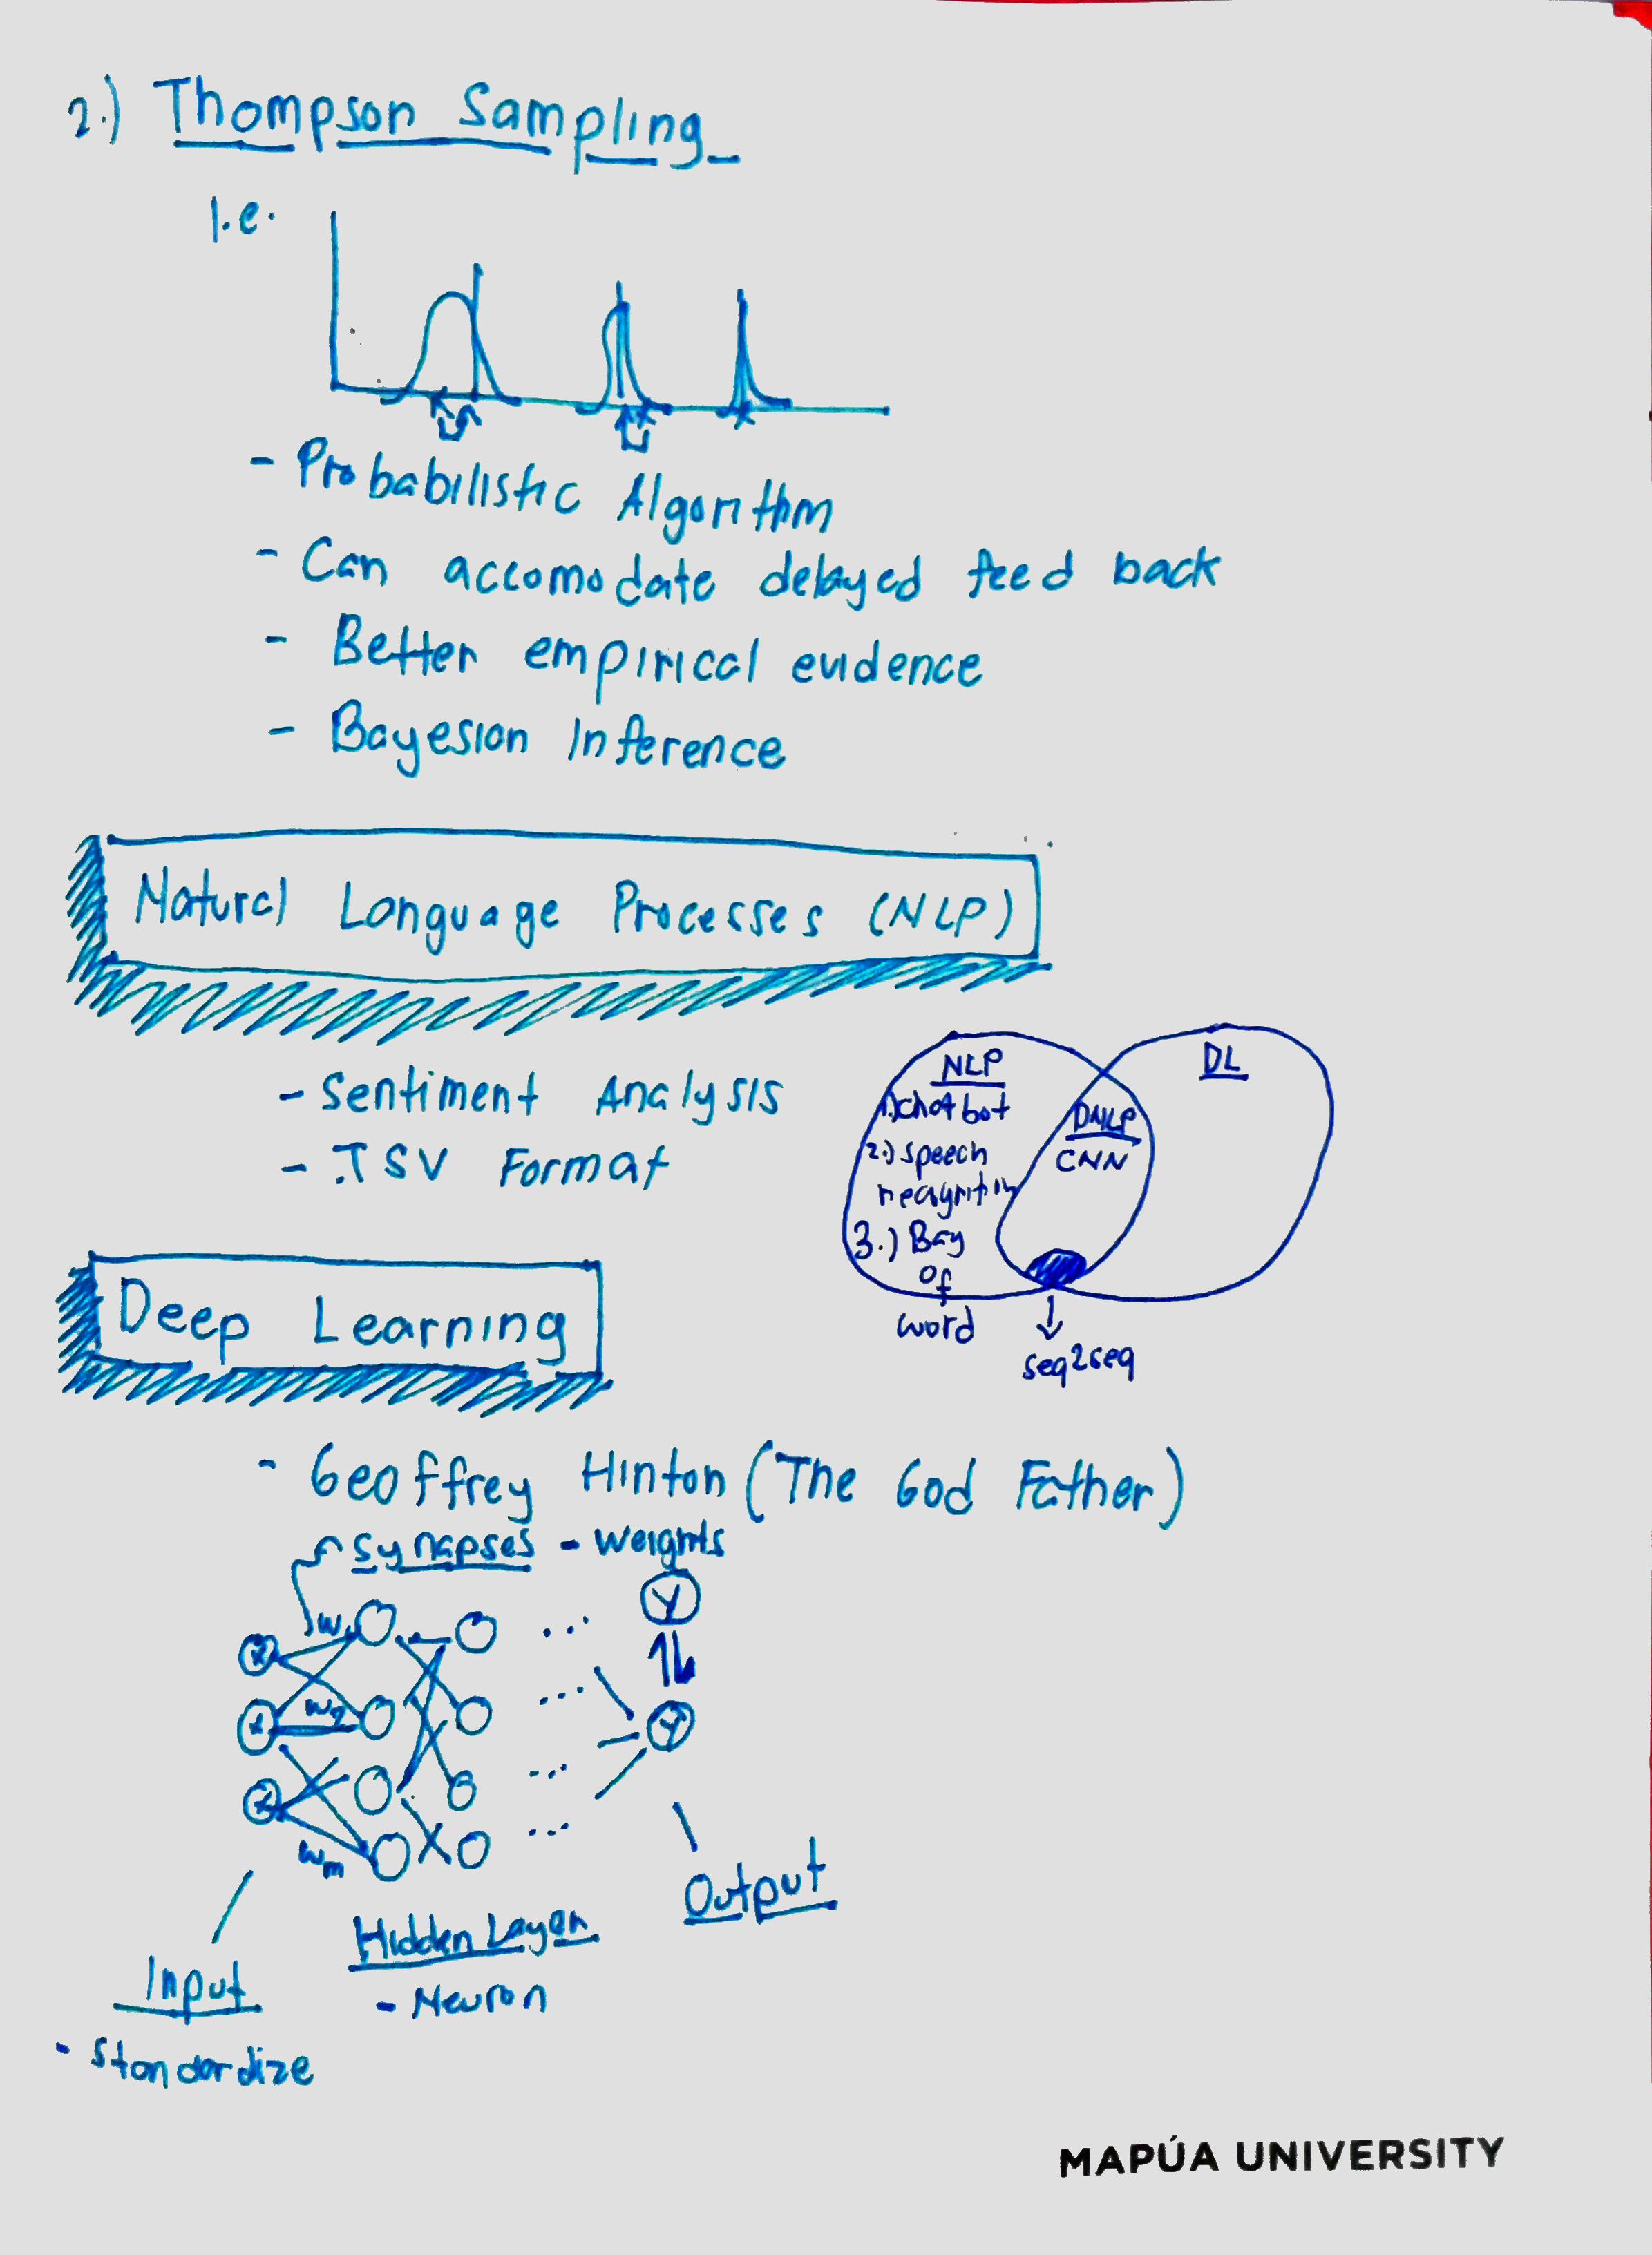 2.) Thompson Sampling
I.e.
- Probabilistic Algorithm
- Can accomodate delayed feed back
- Better empirical evidence
- Bayesian Inference
Natural Language Processes (NLP)
- Sentiment Analysis
- .TSV Format
NLP
1.) Chatbot
2.) Speech
recognition
3.) Bag
of
word
DNLP
CNN
DL
seq2seq
Deep Learning
- Geoffrey Hinton (The God Father)
Synapses - Weights
W1
W2
Wm
X
X
X
...
...
...
...
Y
Y
Input
- Standardize
Hidden Layer
- Neuron
Output
MAPÚA UNIVERSITY